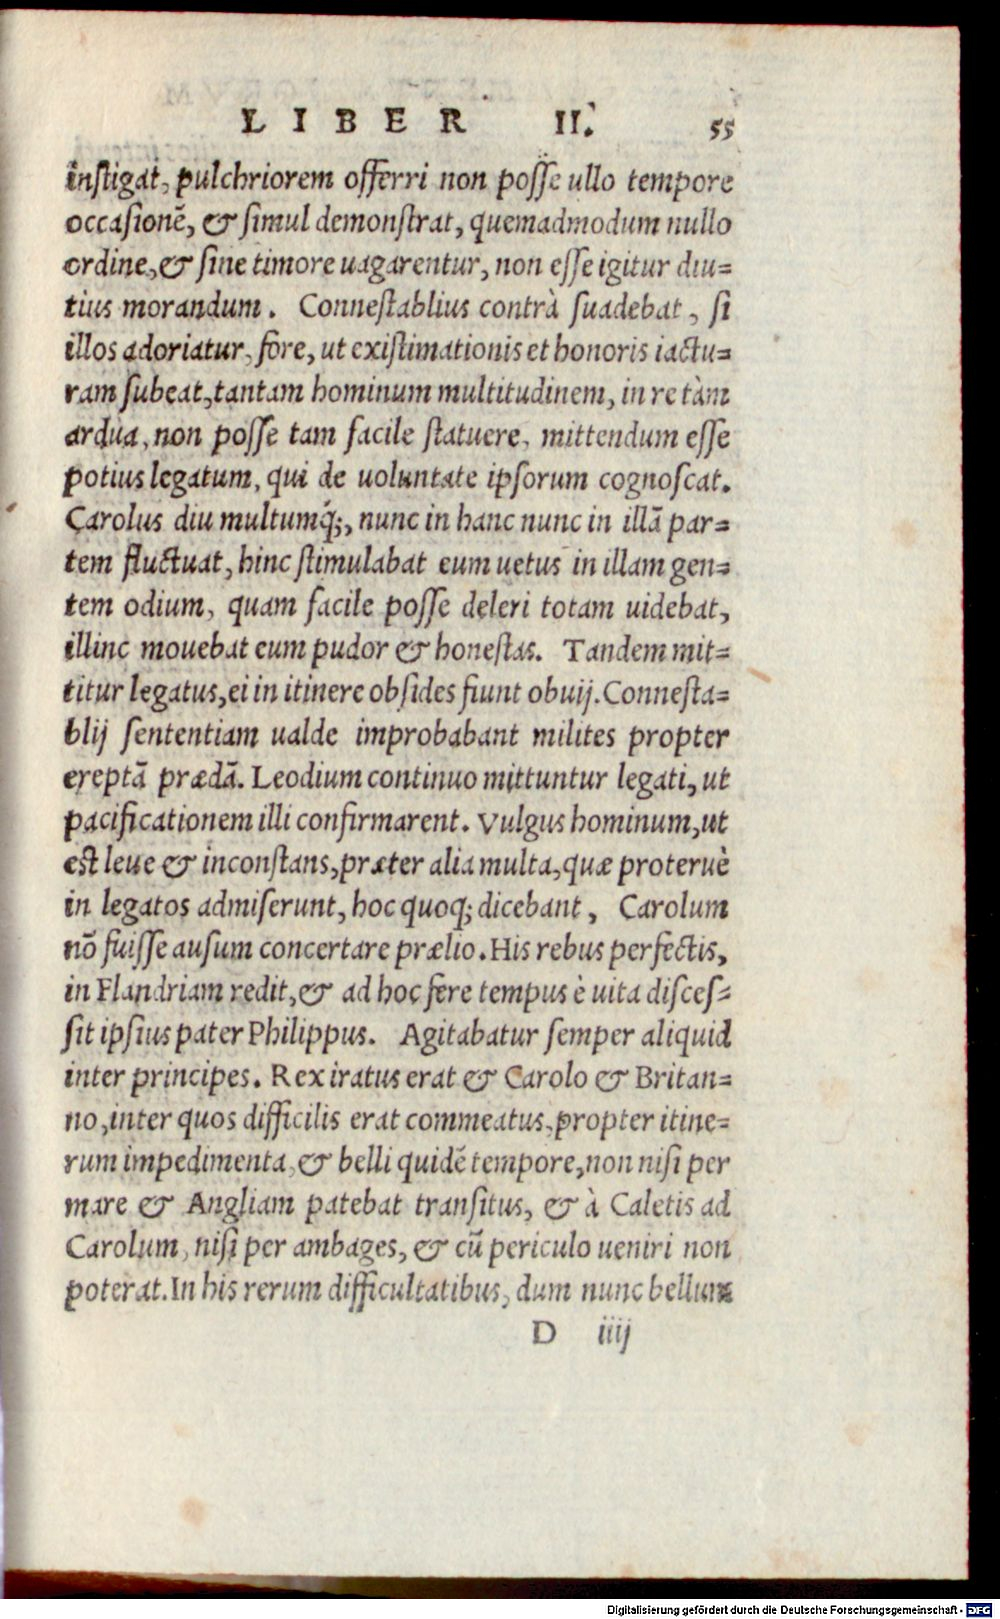 LIBER II. 55
instigat, pulchriorem offerri non posse ullo tempore
occasionē, & simul demonstrat, quemadmodum nullo
ordine, & sine timore uagarentur, non esse igitur diu=
tius morandum. Connestablius contrà suadebat, si
illos adoriatur, fore, ut existimationis et honoris iactu=
ram subeat, tantam hominum multitudinem, in re tàm
ardua, non posse tam facile statuere, mittendum esse
potius legatum, qui de uoluntate ipsorum cognoscat.
Carolus diu multumq́;, nunc in hanc nunc in illā par=
tem fluctuat, hinc stimulabat eum uetus in illam gen=
tem odium, quam facile posse deleri totam uidebat,
illinc mouebat eum pudor & honestas. Tandem mit=
titur legatus, ei in itinere obsides fiunt obuij. Connesta=
blij sententiam ualde improbabant milites propter
ereptā prædā. Leodium continuo mittuntur legati, ut
pacificationem illi confirmarent. Vulgus hominum, ut
est leue & inconstans, præter alia multa, quæ proteruè
in legatos admiserunt, hoc quoq; dicebant, Carolum
nō fuisse ausum concertare prælio. His rebus perfectis,
in Flandriam redit, & ad hoc fere tempus è uita disces=
sit ipsius pater Philippus. Agitabatur semper aliquid
inter principes. Rex iratus erat & Carolo & Britan=
no, inter quos difficilis erat commeatus, propter itine=
rum impedimenta, & belli quidē tempore, non nisi per
mare & Angliam patebat transitus, & à Caletis ad
Carolum, nisi per ambages, & cū periculo ueniri non
poterat. In his rerum difficultatibus, dum nunc bellum
D iiij
Digitalisierung gefördert durch die Deutsche Forschungsgemeinschaft - DFG